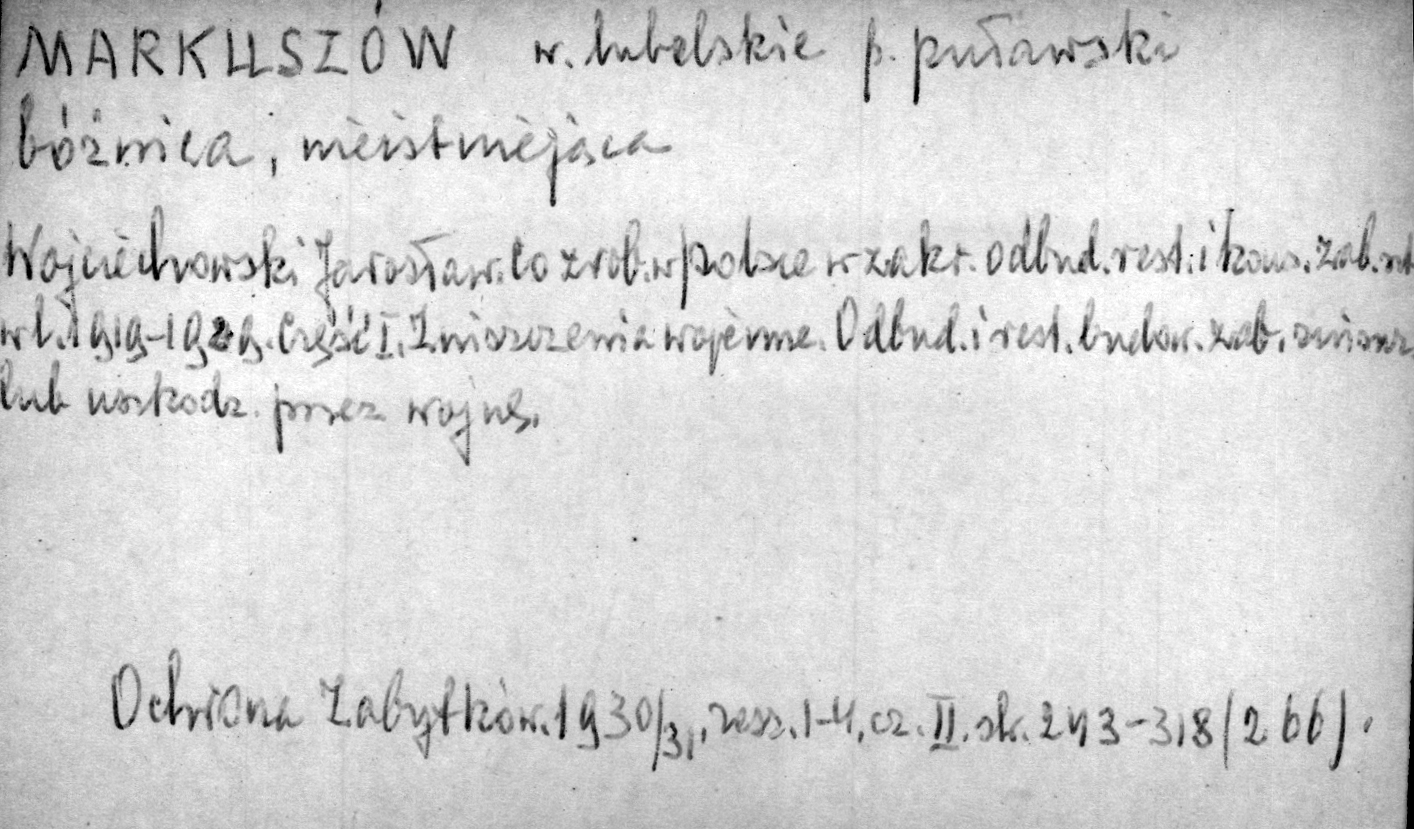 MARKUSZÓW w. lubelskie p. puławski
bóżnica, nieistniejąca
Wojciechowski Jarosław. Co zrob. w Polsce w zakr. odbud. rest. i kons. zab. szt
w l. 1919-1929. Część I. Zniszczenia wojenne. Odbud. i rest. budow. zab. zniszcz
lub uszkodz. przez wojnę.
Ochrona Zabytków. 1930/31, zesz. 1-4, cz. II. str. 243-318 (266).